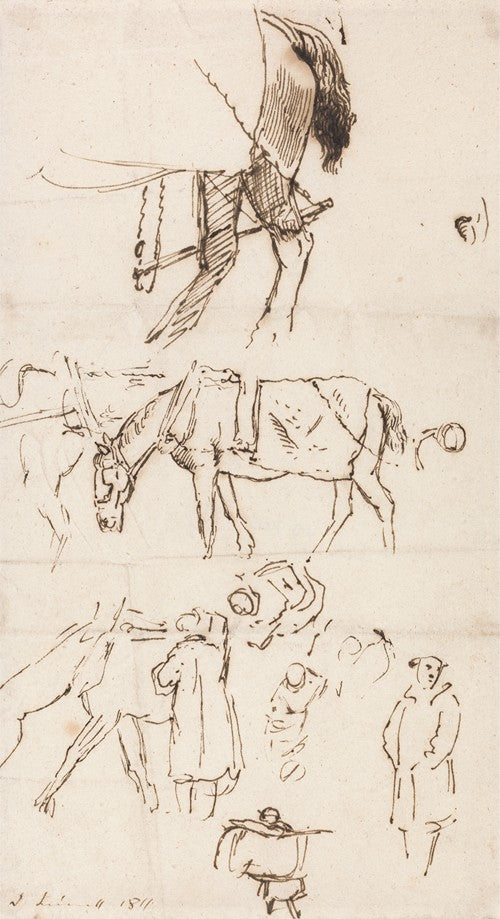 J. Linnell 1811